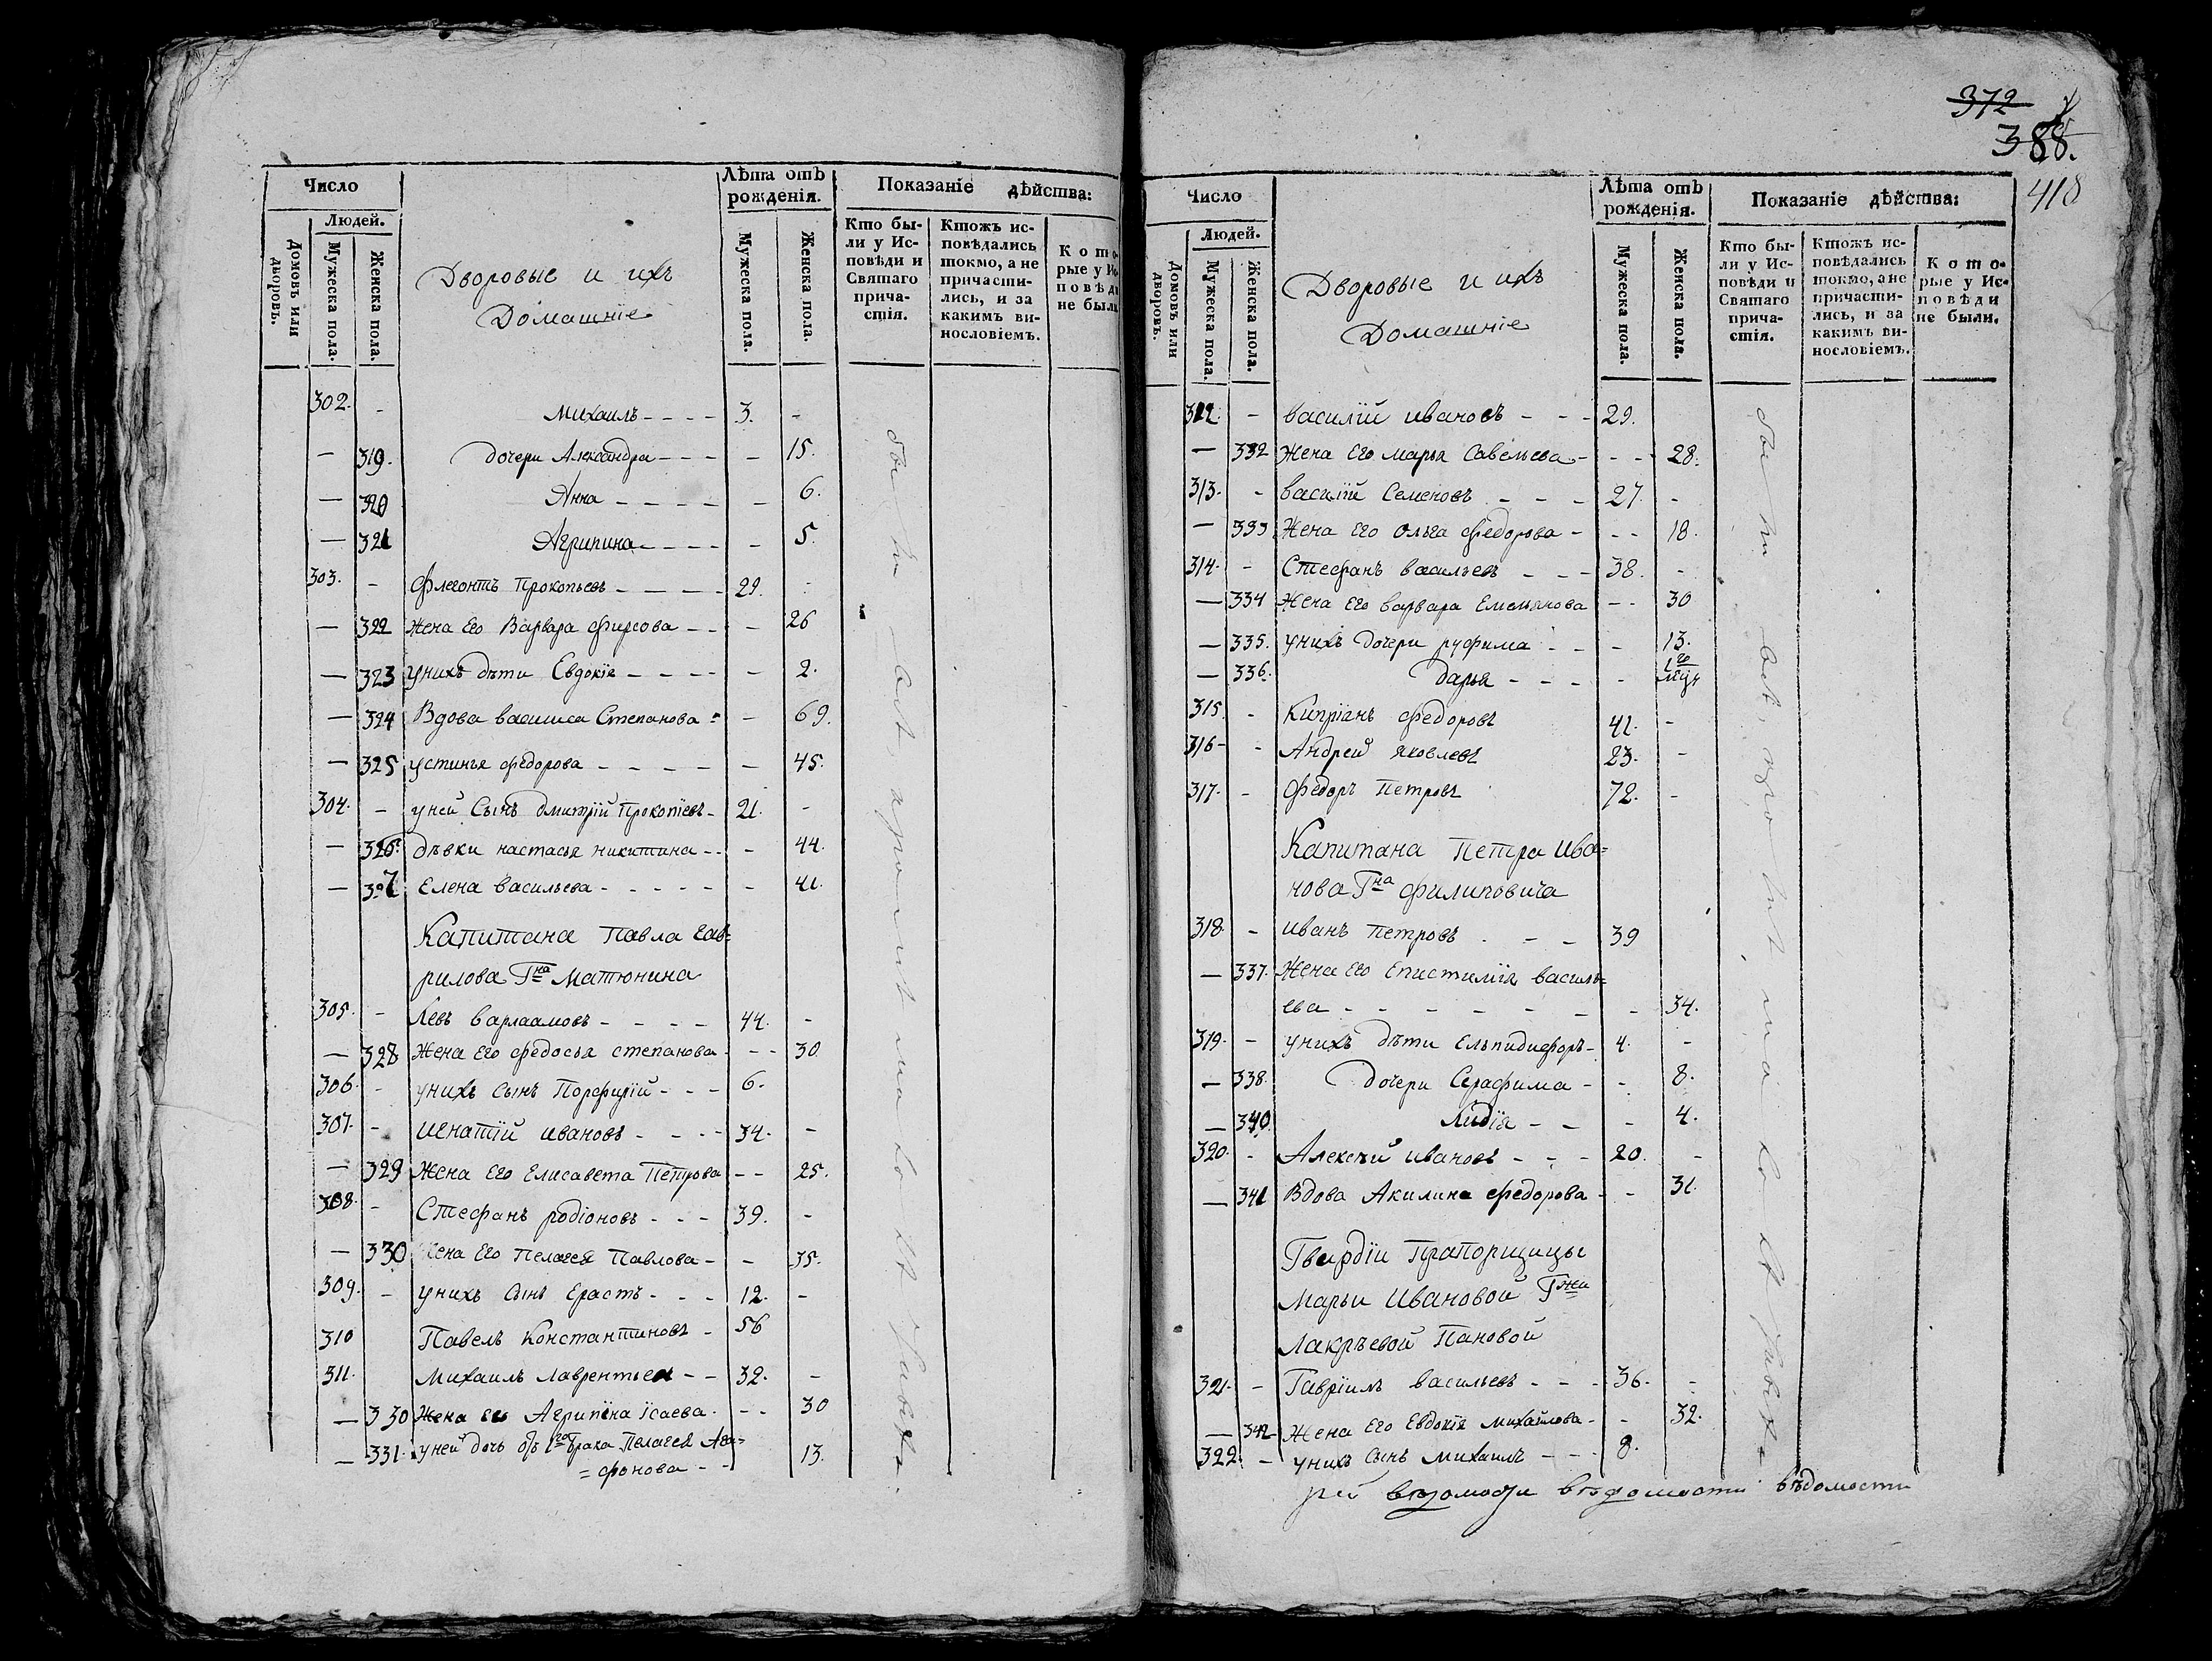 Число
Лѣта отъ рожденія.
Показаніе дѣйства:
Людей.
Домовъ или дворовъ.
Мужеска пола.
Женска пола.
Дворовые и ихъ
Домашніе
Мужеска пола.
Женска пола.
Кто были у Исповѣди и Святаго причастія.
Ктожъ исповѣдались токмо, а не причастились, и за какимъ винословіемъ.
Которые у Исповѣди не были
302. - Михаилъ - - - - 3. -
— 319. дочери Александра - - - - 15.
— 320 Анна - - - - - 6.
— 321 Агрипина - - - - - 5.
303. - Флегонтъ Прокопьевъ - - - - 29. -
— 322 Жена Его Варвара Фирсова - - - 26
— 323 унихъ дѣти Евдокія - - - - - 2.
— 324 Вдова василиса Степанова - - 69.
— 325 устинья федорова - - - - - 45.
304. - уней Сынъ дмитрій Прокопіевъ - 21. -
— 326. дѣвки настасья никитина - - - 44.
— 327 Елена васильева - - - - - - 41.
Капитана Павла Гав=
рилова Гна Матюнина
305. - Левъ варлаамовъ - - - - 44. -
— 328 Жена его федосья степанова - - - 30
306. - унихъ сынъ Порфирій - - - 6.
307. - игнатій ивановъ - - - - 34. -
— 329 Жена Его Елисавета Петрова - - 25.
308. - Стефанъ родіоновъ - - - 39. -
— 330 Жена Его Пелагея Павлова - - 35.
309. - унихъ сынъ Ерастъ - - - 12. -
310 Павелъ Константиновъ - 56
311. Михаилъ лаврентьевъ - - 32. -
— 330 Жена его Агрипина Ісаева - - - 30
— 331. уней дочь отъ 1го брака Пелагея Ага=
=фонова - - 13.
372
388.
418
Число
Лѣта отъ рожденія.
Показаніе дѣйства:
Людей.
Домовъ или дворовъ.
Мужеска пола.
Женска пола.
Дворовые и ихъ
Домашніе
Мужеска пола.
Женска пола.
Кто были у Исповѣди и Святаго причастія.
Ктожъ исповѣдались токмо, а не причастились, и за какимъ винословіемъ.
Которые у Исповѣди не были.
312. - василій ивановъ - - - 29.
— 332 Жена Его марья Савельева - - - 28.
313. - василій Семеновъ - - - 27. -
— 333 Жена Его ольга федорова - - - 18.
314. - Стефанъ васильевъ - - - 38. -
— 334 Жена Его варвара Емельянова - - 30
— 335. унихъ дочери руфима - - - 13.
— 336. дарья - - - - 1го
315. - Кипріанъ федоровъ 41. -
316 - - Андрей яковлевъ 23. -
317. - Федоръ Петровъ 72. -
Капитана Петра Ива=
нова Гна филиповича
318. - иванъ Петровъ . - - 39
— 337. Жена его Епистимія василь=
ева - - - - - - - 34.
319. - унихъ дѣти Ельпидифоръ - 4. -
— 338. дочери Серафима - - 8.
— 340. Лидія - - - 4.
320. - Алексѣй ивановъ - - - 20. -
— 341 Вдова Акилина федорова - - 31.
Гвардіи Прапорщицы
Марьи Ивановой Гжи
Пановой
321. - Гавріилъ васильевъ - - - 36. -
— 342 Жена Его Евдокія михайлова - - 32.
322. - унихъ сынъ михаилъ - - - 8.
вѣдомости вѣдомости вѣдомости